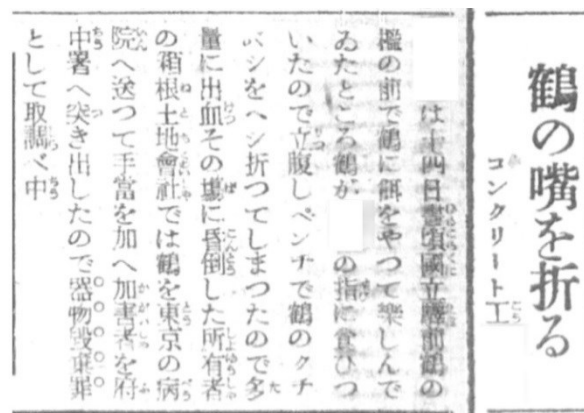 鶴の嘴を折る
コンクリート工
は十四日晝頃國立驛前鶴の
檻の前で鶴に餌をやつて樂しんで
ゐたところ鶴が　の指に食ひつ
いたので立腹しペンチで鶴のクチ
バシをヘシ折つてしまつたので多
量に出血その塲に昏倒した所有者
の箱根土地會社では鶴を東京の病
院へ送つて手當を加へ加害者を府
中署へ突き出したので器物毀棄罪
として取調べ中